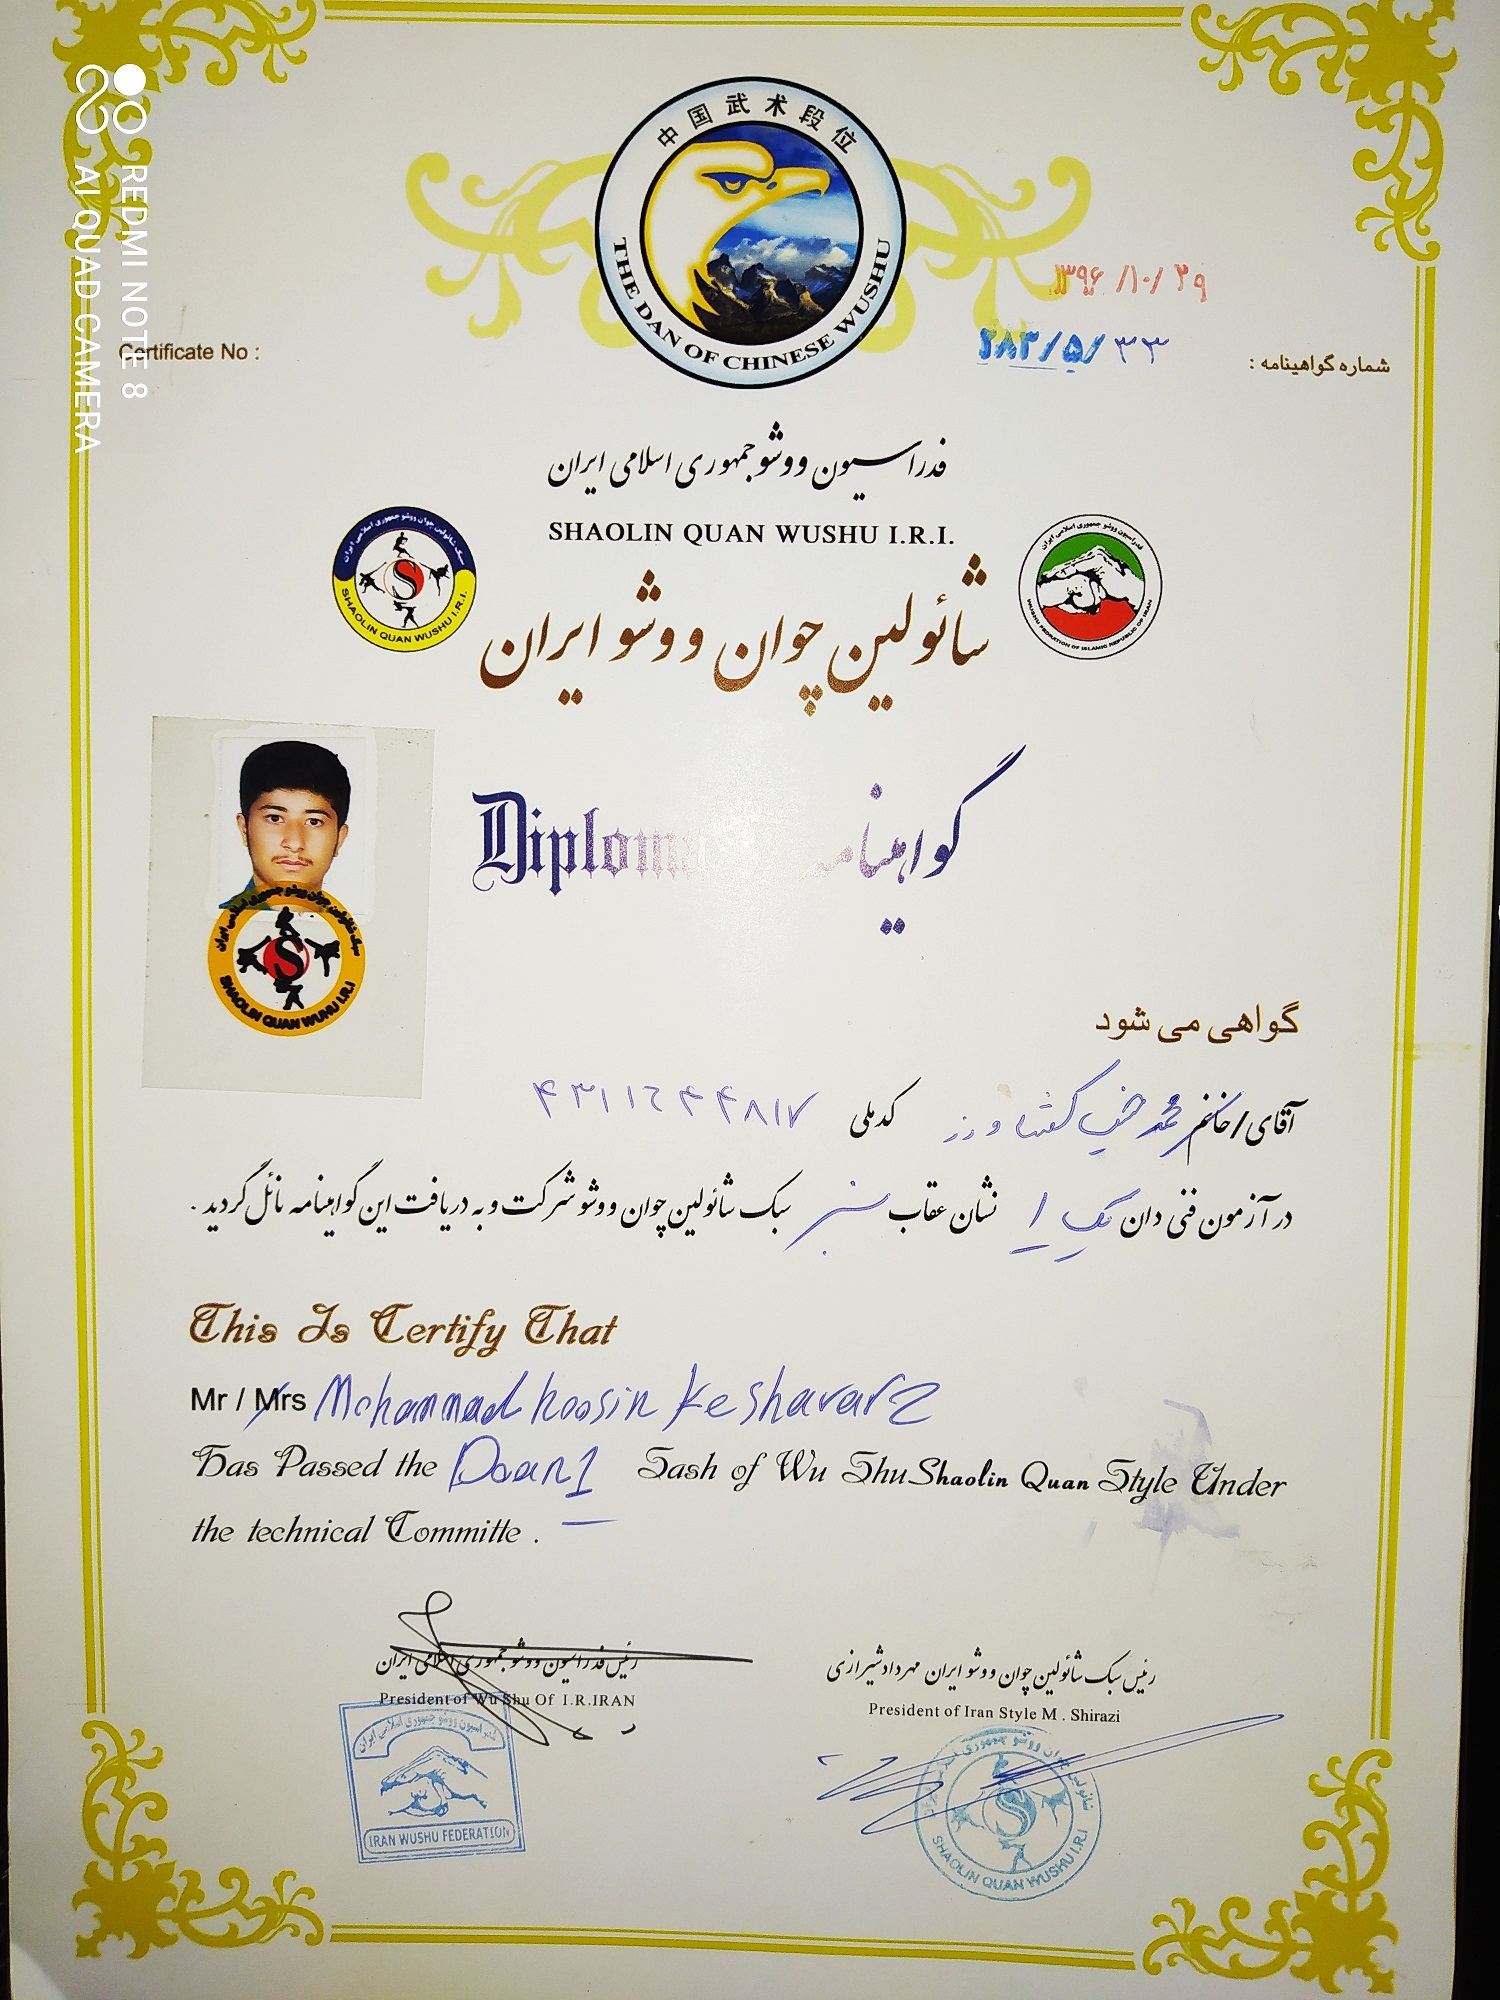 中国武术段位
THE DAN OF CHINESE WUSHU
۱۳۹۶/۱۰/۲۹
۲۸۲/۵/۳۳
Certificate No :
شماره گواهینامه :
فدراسیون ووشو جمهوری اسلامی ایران
SHAOLIN QUAN WUSHU I.R.I.
سبک شائولین چوان ووشو جمهوری اسلامی ایران
SHAOLIN QUAN WUSHU I.R.I.
فدراسیون ووشو جمهوری اسلامی ایران
WUSHU FEDRATION OF ISLAMIC REPUBLIC OF IRAN
شائولین چوان ووشو ایران
Diploma گواهینامه
سبک شائولین چوان ووشو جمهوری اسلامی ایران
S
SHAOLIN QUAN WUHU I.R.I
گواهی می شود
آقای/خانم محمد کشاورز کد ملی
در آزمون فنی دان یک ۱ نشان عقاب سبز سبک شائولین چوان ووشو شرکت و به دریافت این گواهینامه نائل گردید .
This Is Certify That
Mr / Mrs Mohammad hoosin Keshavarz
Has Passed the Daan 1 Sash of Wu Shu Shaolin Quan Style Under
the technical Committe .
رئیس فدراسیون ووشو جمهوری اسلامی ایران
President of Wu Shu Of I.R.IRAN
فدراسیون ووشو جمهوری اسلامی ایران
IRAN WUSHU FEDERATION
رئیس سبک شائولین چوان ووشو ایران مهرداد شیرازی
President of Iran Style M . Shirazi
SHAOLIN QUAN WUSHU I.R.I
REDMI NOTE 8
AI QUAD CAMERA